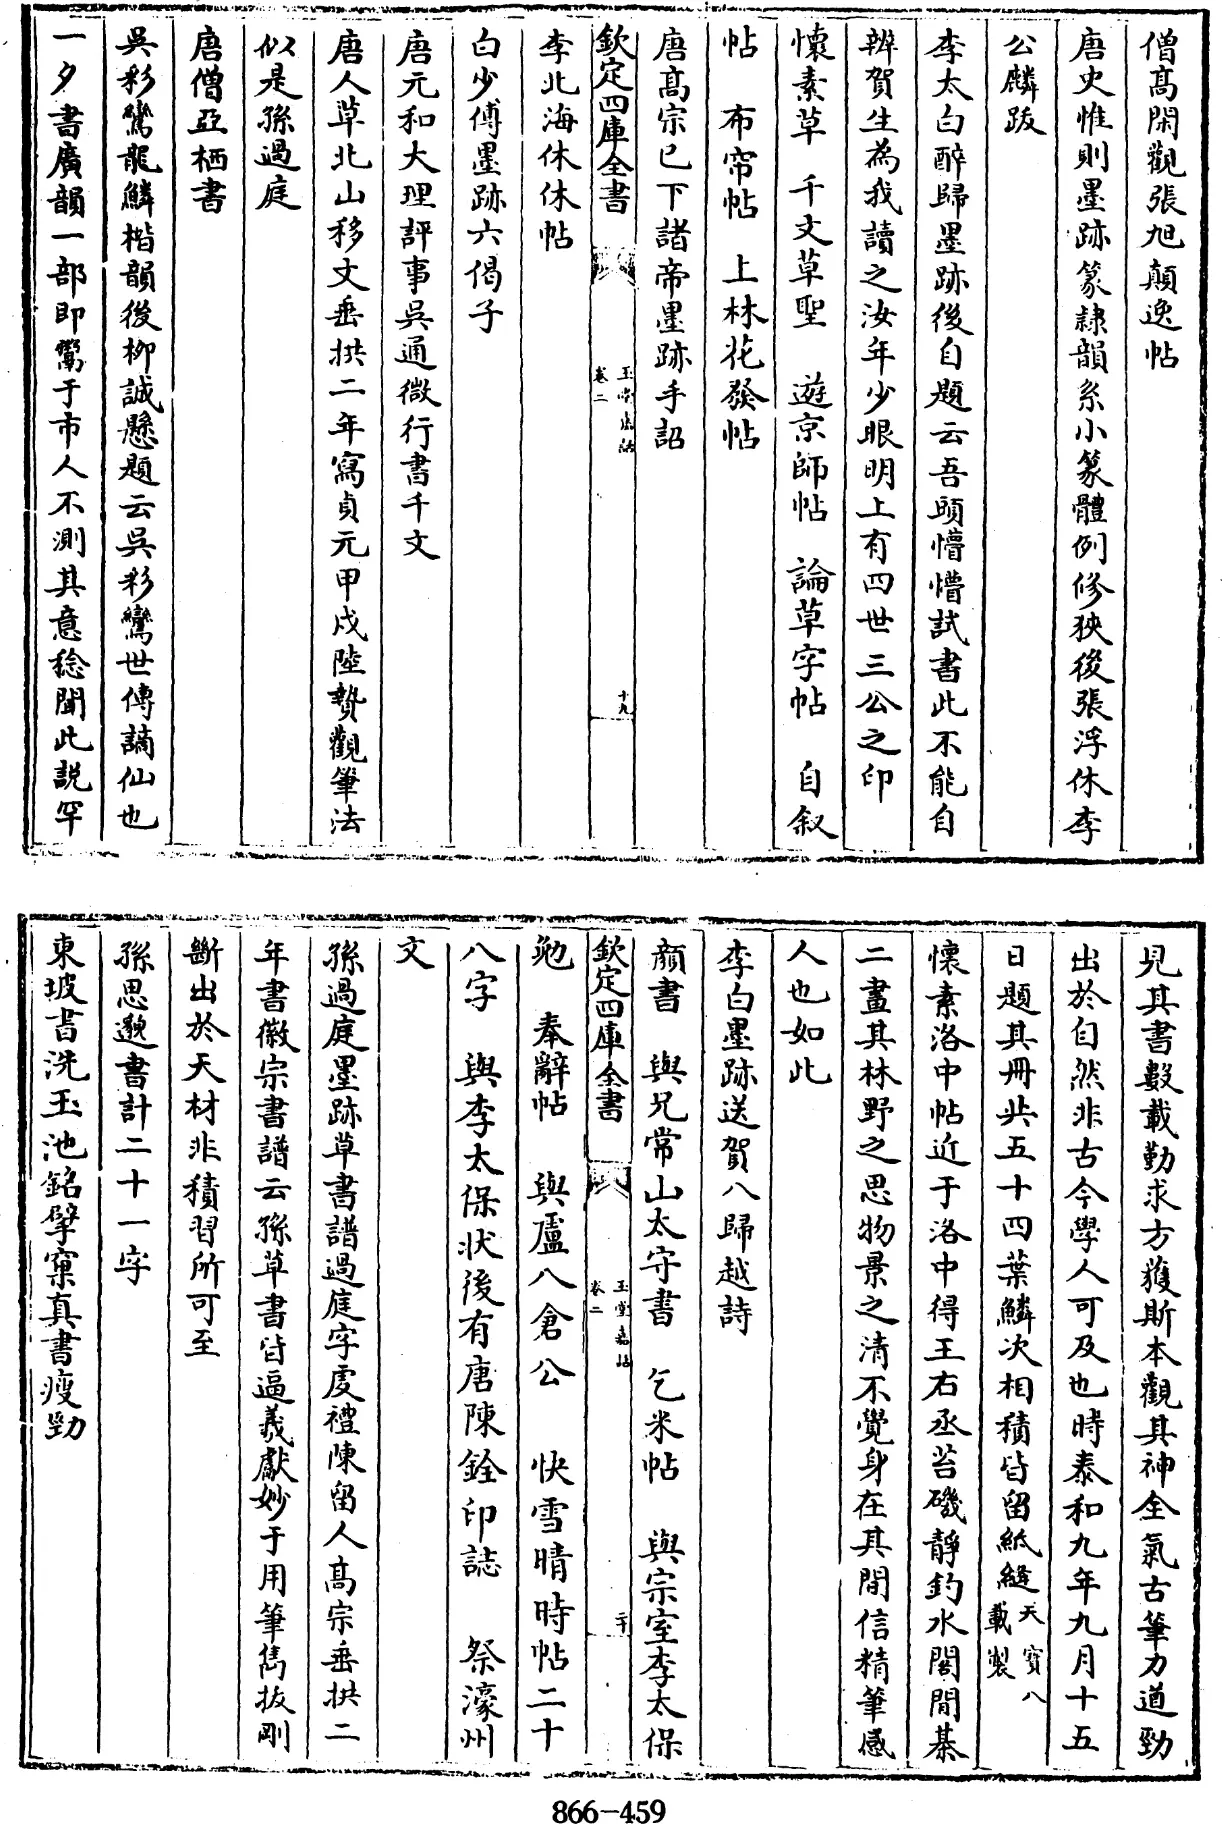 僧髙閑觀張旭顛逸帖
唐史惟則墨跡篆隷韻系小篆體例修狹後張浮休李
公麟跋
李太白醉歸墨跡後自題云吾頭懵懵試書此不能自
辨賀生為我讀之汝年少眼明上有四世三公之印
懷素草 千文草聖 遊京師帖 論草字帖 自叙
帖 布帘帖 上林花發帖
唐髙宗已下諸帝墨跡手詔
欽定四庫全書 玉堂嘉話 卷二 十九
李北海休休帖
白少傅墨跡六偈子
唐元和大理評事吳通微行書千文
唐人草北山移文垂拱二年寫貞元甲戌陸贄觀筆法
似是孫過庭
唐僧亞栖書
吳彩鸞龍鱗楷韻後栁誠懸題云吳彩鸞世傳謫仙也
一夕書廣韻一部即鬻于市人不測其意稔聞此説罕
見其書數載勤求方獲斯本觀其神全氣古筆力遒勁
出於自然非古今學人可及也時泰和九年九月十五
日題其冊共五十四葉鱗次相積皆留紙縫天寳八載製
懷素洛中帖近于洛中得王右丞苔磯靜釣水閣閒棊
二畫其林野之思物景之清不覺身在其間信精筆感
人也如此
李白墨跡送賀八歸越詩
顔書 與兄常山太守書 乞米帖 與宗室李太保
欽定四庫全書 玉堂嘉話 卷二 二十
勉 奉辭帖 與盧八倉公 快雪晴時帖二十
八字 與李太保狀後有唐陳銓印誌 祭濠州
文
孫過庭墨跡草書譜過庭字䖍禮陳留人髙宗垂拱二
年書徽宗書譜云孫草書皆逼羲獻妙于用筆雋拔剛
斷出於天材非積習所可至
孫思邈書計二十一字
東坡書洗玉池銘擘窠真書瘦勁
866-459